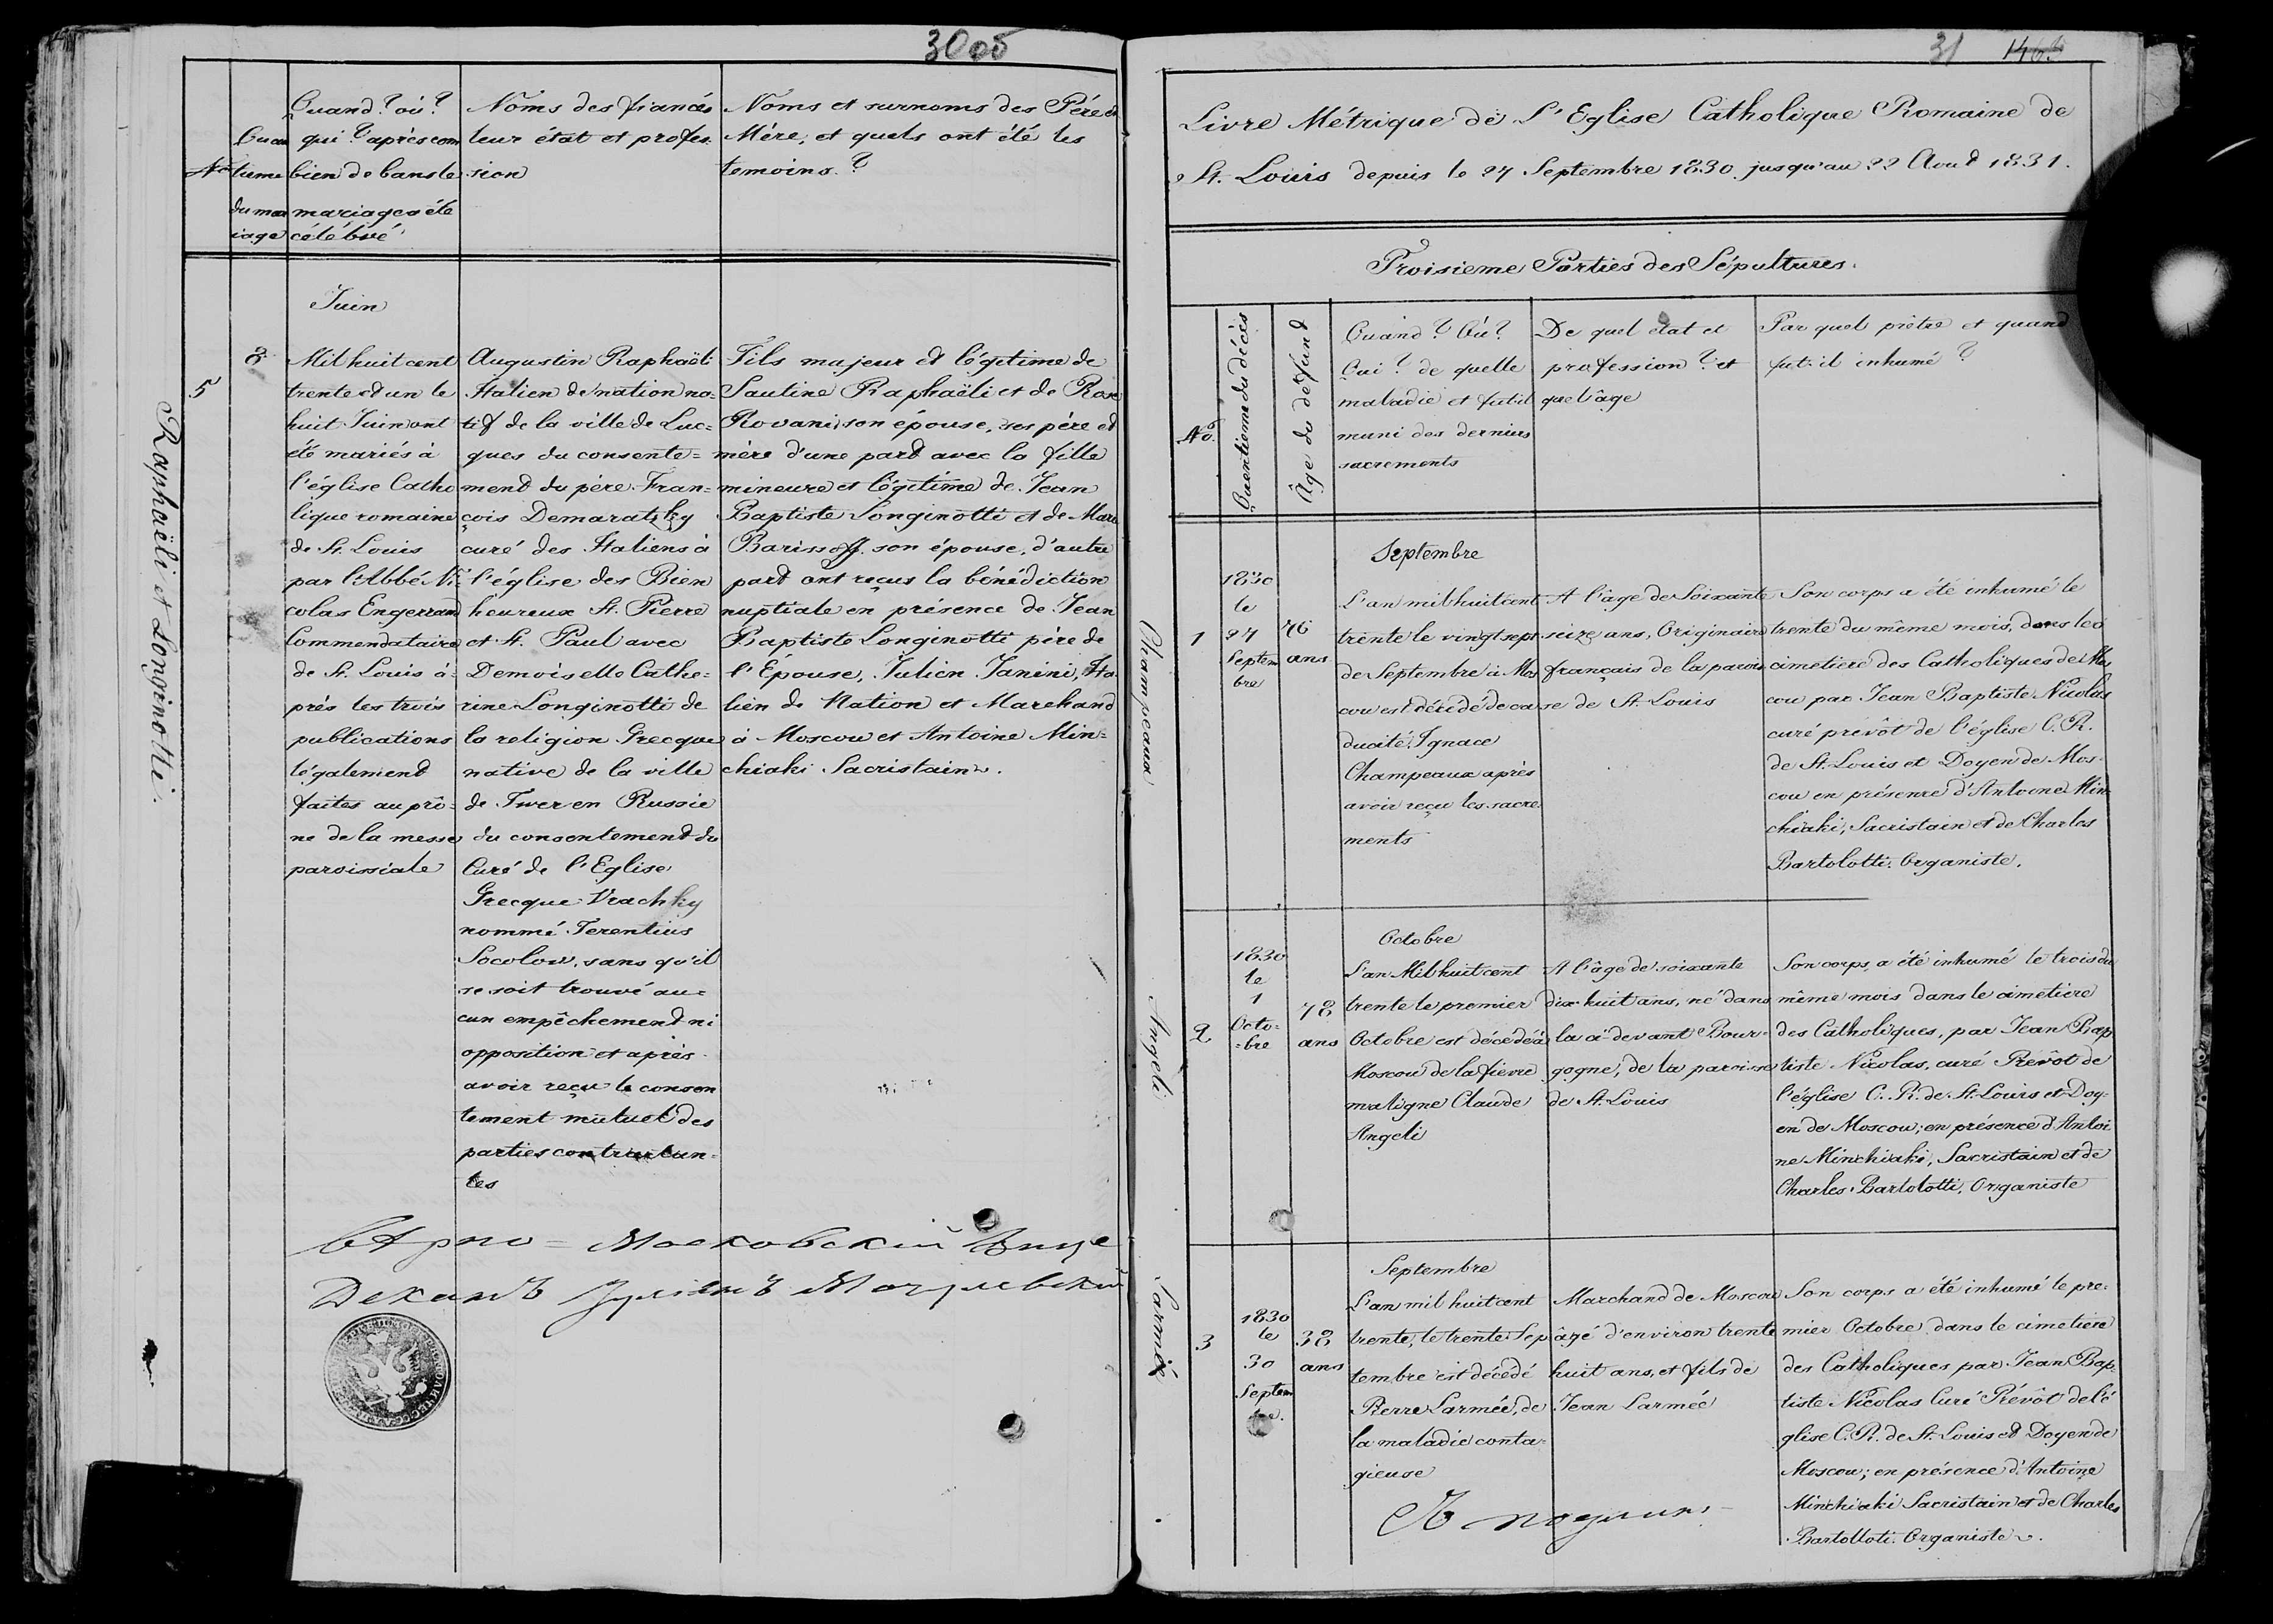 30 об
Quand? où?
qui? après com
bien de bans le
mariage a été
célébré
No
Quan
tieme
du mar
iage
Noms des fiancés
leur état et profes-
sion
Noms et surnoms des Père et
Mère, et quels ont été les
temoins?
Raphaëli et Longinotti.
5
8
Juin
Mil huit cent
trente et un le
huit Juin ont
été mariés à
l'église Catho
lique romaine
de St. Louis
par l'Abbé Ni-
colas Engerrand
Commendataire
de St. Louis a-
près les trois
publications
légalement
faites au prô-
ne de la messe
paroissiale
Augustin Raphaëli
Italien de nation na-
tif de la ville de Luc-
ques du consente-
ment du père Fran-
çois Demaratzky
curé des Italiens à
l'église des Bien
heureux St. Pierre
et St. Paul avec
Demoiselle Cathe-
rine Longinotti de
la religion Grecque
native de la ville
de Twer en Russie
du consentement du
Curé de l'Eglise
Grecque Vrachky
nommé Terentius
Socolow, sans qu'il
se soit trouvé au-
cun empêchement ni
opposition et après
avoir reçu le consen
tement mutuel des
parties contractan-
tes
Fils majeur et légitime de
Pauline Raphaëli et de Rose
Rovani son épouse, ses père et
mère d'une part avec la fille
mineure et légitime de Jean
Baptiste Longinotti et de Marie
Barissoff son épouse, d'autre
part ont reçus la bénédiction
nuptiale en présence de Jean
Baptiste Longinotti père de
l'Épouse, Julien Janini, Ita-
lien de Nation et Marchand
à Moscou et Antoine Min-
chiaki Sacristain.
Московский Вице
Деканъ
31 146
Livre Métrique de l'Eglise Catholique Romaine de
St. Louis depuis le 27 Septembre 1830 jusqu'au 22 Aout 1831.
Troisieme Parties des Sépultures.
No.
Quentieme du décès
Âge du défund
Quand? Où?
Qui? de quelle
maladie et fut il
muni des derniers
sacrements
De quel état et
profession? et
quel âge
Par quel prêtre et quand
fut-il inhumé?
Champeaux
1
1830
le
27
Septem
bre
76
ans
Septembre
L'an mil huit cent
trente le vingt sept
de Septembre à Mos
cou est décédé de ca
ducité, Ignace
Champeaux après
avoir reçu les sacre
ments
A l'âge de Soixante
seize ans, Originaire
français de la parois
se de St. Louis
Son corps a été inhumé le
trente du même mois, dans le
cimetiere des Catholiques de Mos
cou par Jean Baptiste Nicolas
curé prévôt de l'église C. R.
de St. Louis et Doyen de Mos-
cou en présence d'Antoine Min
chiaki, Sacristain et de Charles
Bartolotti. Organiste.
Angeli
2
1830
le
1
Octo-
-bre
78
ans
Octobre
L'an Mil huit cent
trente le premier
Octobre est décédé à
Moscou de la fievre
maligne Claude
Angeli
A l'âge de soixante
dix-huit ans, né dans
la ci-devant Bour-
gogne, de la paroisse
de St. Louis
Son corps, a été inhumé le trois du
même mois dans le cimetiere
des Catholiques, par Jean Bap
tiste Nicolas, curé Prévôt de
l'église C. R. de St. Louis et Doy-
en de Moscou; en présence d'Antoi
ne Minchiaki, Sacristain et de
Charles Bartolotti, Organiste
Larmée
3
1830
le
30
Septem
bre.
38
ans
Septembre
L'an mil huit cent
trente, le trente Sep
tembre est décédé
Pierre Larmée, de
la maladie conta-
gieuse
Marchand de Moscou
âgé d'environ trente
huit ans, et fils de
Jean Larmée
Son corps a été inhumé le pre-
mier Octobre dans le cimetiere
des Catholiques par Jean Bap
tiste Nicolas Curé Prévôt de l'é
glise C. R. de St. Louis et Doyen de
Moscou; en présence d'Antoine
Minchiaki Sacristain et de Charles
Bartolloti. Organiste.